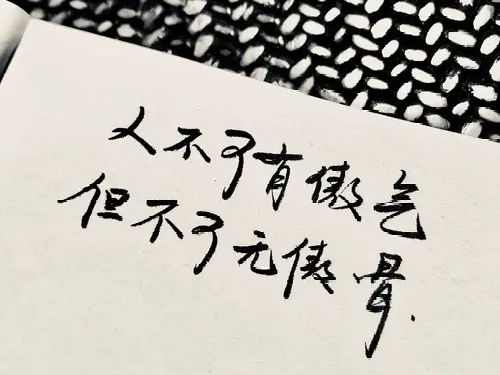 人不可有傲气
但不可无傲骨.